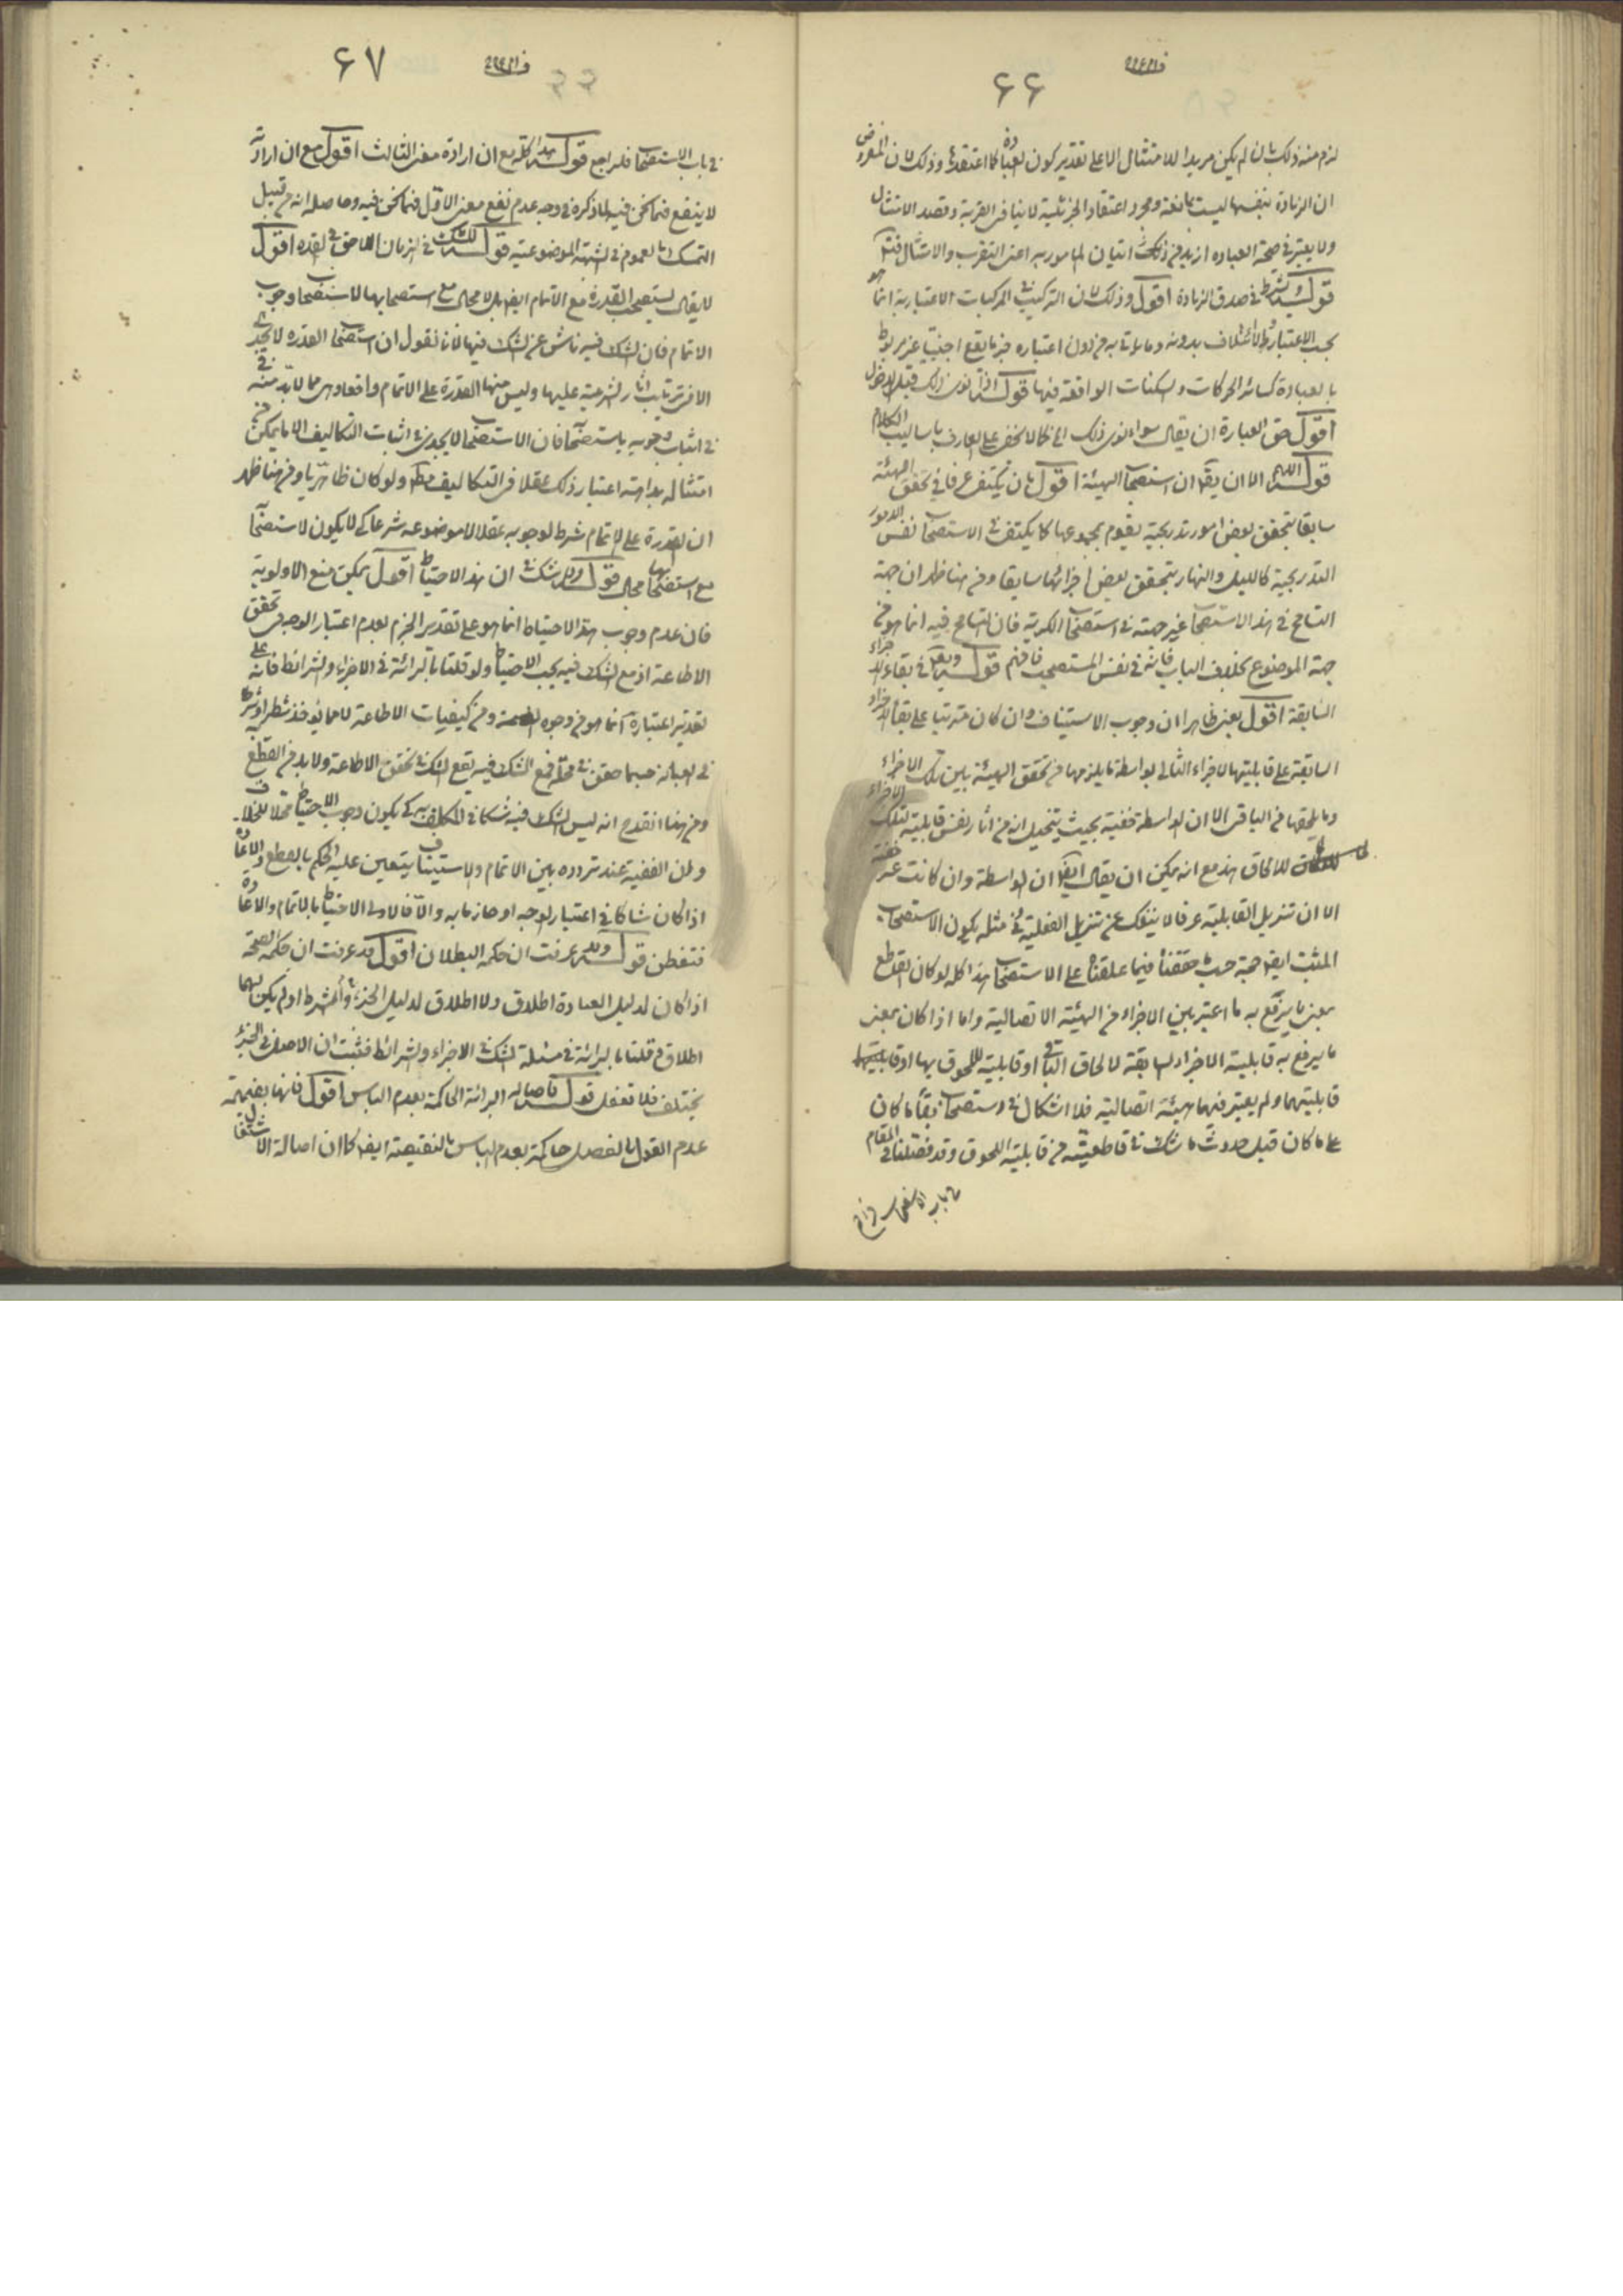 ۶۶
لزم منه ذلك بان لم يكن مريدا للامتثال الا على تقدير كون العبادة كما اعتقده وذلك لان المفروض
ان الزيادة بنفسها ليست بمانعة ومجرد اعتقاد الجزئية لا ينافى القربة وقصد الامتثال
ولا يعتبر فى صحة العباده ازيد من ذلك اتيان المامور به اعنى التقرب والامتثال فتدبر
قوله ويشترط فى صدق الزيادة اقول وذلك لان التركيب فى المركبات الاعتبارية انما هو
بحسب الاعتبار ولا ائتلاف بدونه وما يؤتى به من دون اعتباره جزء يقع اجنبيا غير مربوط
بالعبادة كسائر الحركات والسكنات الواقعة فيها قوله اذا نوى ذلك قبل الدخول
اقول حق العبارة ان يقال سواء نوى ذلك الخ كما لا يخفى على العارف باساليب الكلام
قوله اللهم الا ان يقال ان استصحاب الهيئة اقول بان يكتفى عرفا فى تحقق الهيئة
سابقا بتحقق بعض امور تدريجية يقوم بمجموعها كما يكتفى فى الاستصحاب نفس الامور
التدريجية كالليل والنهار بتحقق بعض اجزائها سابقا ومن هنا ظهر ان جهة
التسامح فى هذا الاستصحاب غير جهته فى استصحاب الكرية فان التسامح فيه انما هو من
جهة الموضوع بخلاف الباب فانه فى نفس المستصحب فافهم قوله وبقى فى بقاء الاجزاء
السابقة اقول يعنى ظاهرا ان وجوب الاستيناف وان كان مترتبا على بقاء الاجزاء
السابقة على قابليتها لاجزاء التالى بواسطة ما يلزمها من تحقق الهيئة بين تلك الاجزاء
وما يلحقها من الباقى الا ان الواسطة خفية بحيث يتخيل انه من آثار نفس قابلية تلك الاجزاء
للالحاق هذا مع انه يمكن ان يقال ايضا ان الواسطة وان كانت غير خفية
الا ان تنزيل القابلية عرفا لا ينفك عن تنزيل الفعلية وفى مثله يكون الاستصحاب
المثبت ايضا حجة حسب ما حققناه فيما علقناه على الاستصحاب هذا كله لو كان القاطع
بمعنى ما يرتفع به ما اعتبر بين الاجزاء من الهيئة الاتصالية واما اذا كان بمعنى
ما يرفع به قابلية الاجزاء السابقة لالحاق الباقى او قابليته للحوق بها او
قابليتهما ولم يعتبر فيهما هيئة اتصالية فلا اشكال فى استصحاب بقاء ما كان
على ما كان قبل حدوث ما شك فى قاطعيته من قابلية اللحوق وقد فصلنا المقام
۶۷
فى باب الاستصحاب فليراجع قوله هذا كله مع ان ارادة معنى الثالث اقول مع ان ارادته
لا ينفع فيما نحن فيه لما ذكره فى وجه عدم نفع معنى الاول فيما نحن فيه وحاصله انه من قبيل
التمسك بالعموم فى الشبهة الموضوعية قوله للشك فى الزمان اللاحق فى القدرة اقول
لا يقال يستصحب القدرة مع الاتمام ايضا بل لا مجال مع استصحابها لاستصحاب وجوب
الاتمام فان الشك فيه ناش عن الشك فيها لانا نقول ان استصحاب القدره لا يجدى
الا فى ترتيب اثار الشرعية عليها وليس منها القدرة على الاتمام واقعا وهى مما لا بد منه
فى اثبات وجوبه باستصحابها فان الاستصحاب لا يجدى فى اثبات التكاليف الا ما يمكن
امتثاله بداهة اعتبار ذلك عقلا فى التكاليف مطلقا ولو كان ظاهريا ومن هنا ظهر
ان القدرة على الاتمام شرط لوجوبه عقلا لا موضوعه شرعا كى لا يكون لاستصحابه
مع استصحابها مجال قوله ولا شك فى ان هذا الاحتياط اقول يمكن منع الاولوية
فان عدم وجوب هذا الاحتياط انما هو على تقدير الجزم بعدم اعتبار الوجه فى تحقق
الاطاعة اذ مع الشك فيه يجب الاحتياط ولو قلنا بالبرائة فى الاجزاء والشرائط فانه على
تقدير اعتباره انما هو من وجوه ومن كيفيات الاطاعة لا مما يؤخذ شطرا او شرطا
فى العبادة حسبما حقق فى محله فمع الشك فيه يقع الشك فى تحقق الاطاعة ولا بد من القطع
ومن هنا انقدح انه ليس الشك فيه شكا فى المكلف به كى يكون وجوب الاحتياط محلا للخلاف
اذا كان شاكا فى اعتبار الوجه او جازما به والا فالاولى الاحتياط بالاتمام والاعادة
فتفطن قوله وقد عرفت ان حكمه البطلان اقول قد عرفت ان حكمه الصحة
اذا كان لدليل العبادة اطلاق ولا اطلاق لدليل الجزء او الشرط او لم يكن لهما
اطلاق وقلنا بالبرائة فى مسئلة الشك فى الاجزاء والشرائط فثبت ان الاصل فى الجزء
يختلف فلا تغفل قوله فاصالة البرائة الحاكمة بعدم الباس اقول فانها بضميمة
عدم القول بالفصل حاكمة بعدم الباس بالنقيصة ايضا كما ان اصالة الاشتغال